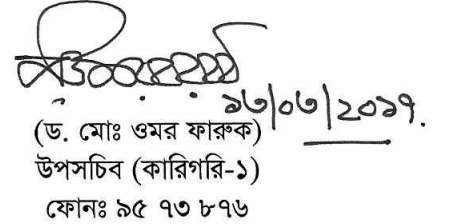 ১৩/০৩/২০১৭.
(ড. মোঃ ওমর ফারুক)
উপসচিব (কারিগরি-১)
ফোনঃ ৯৫ ৭৩ ৮৭৬